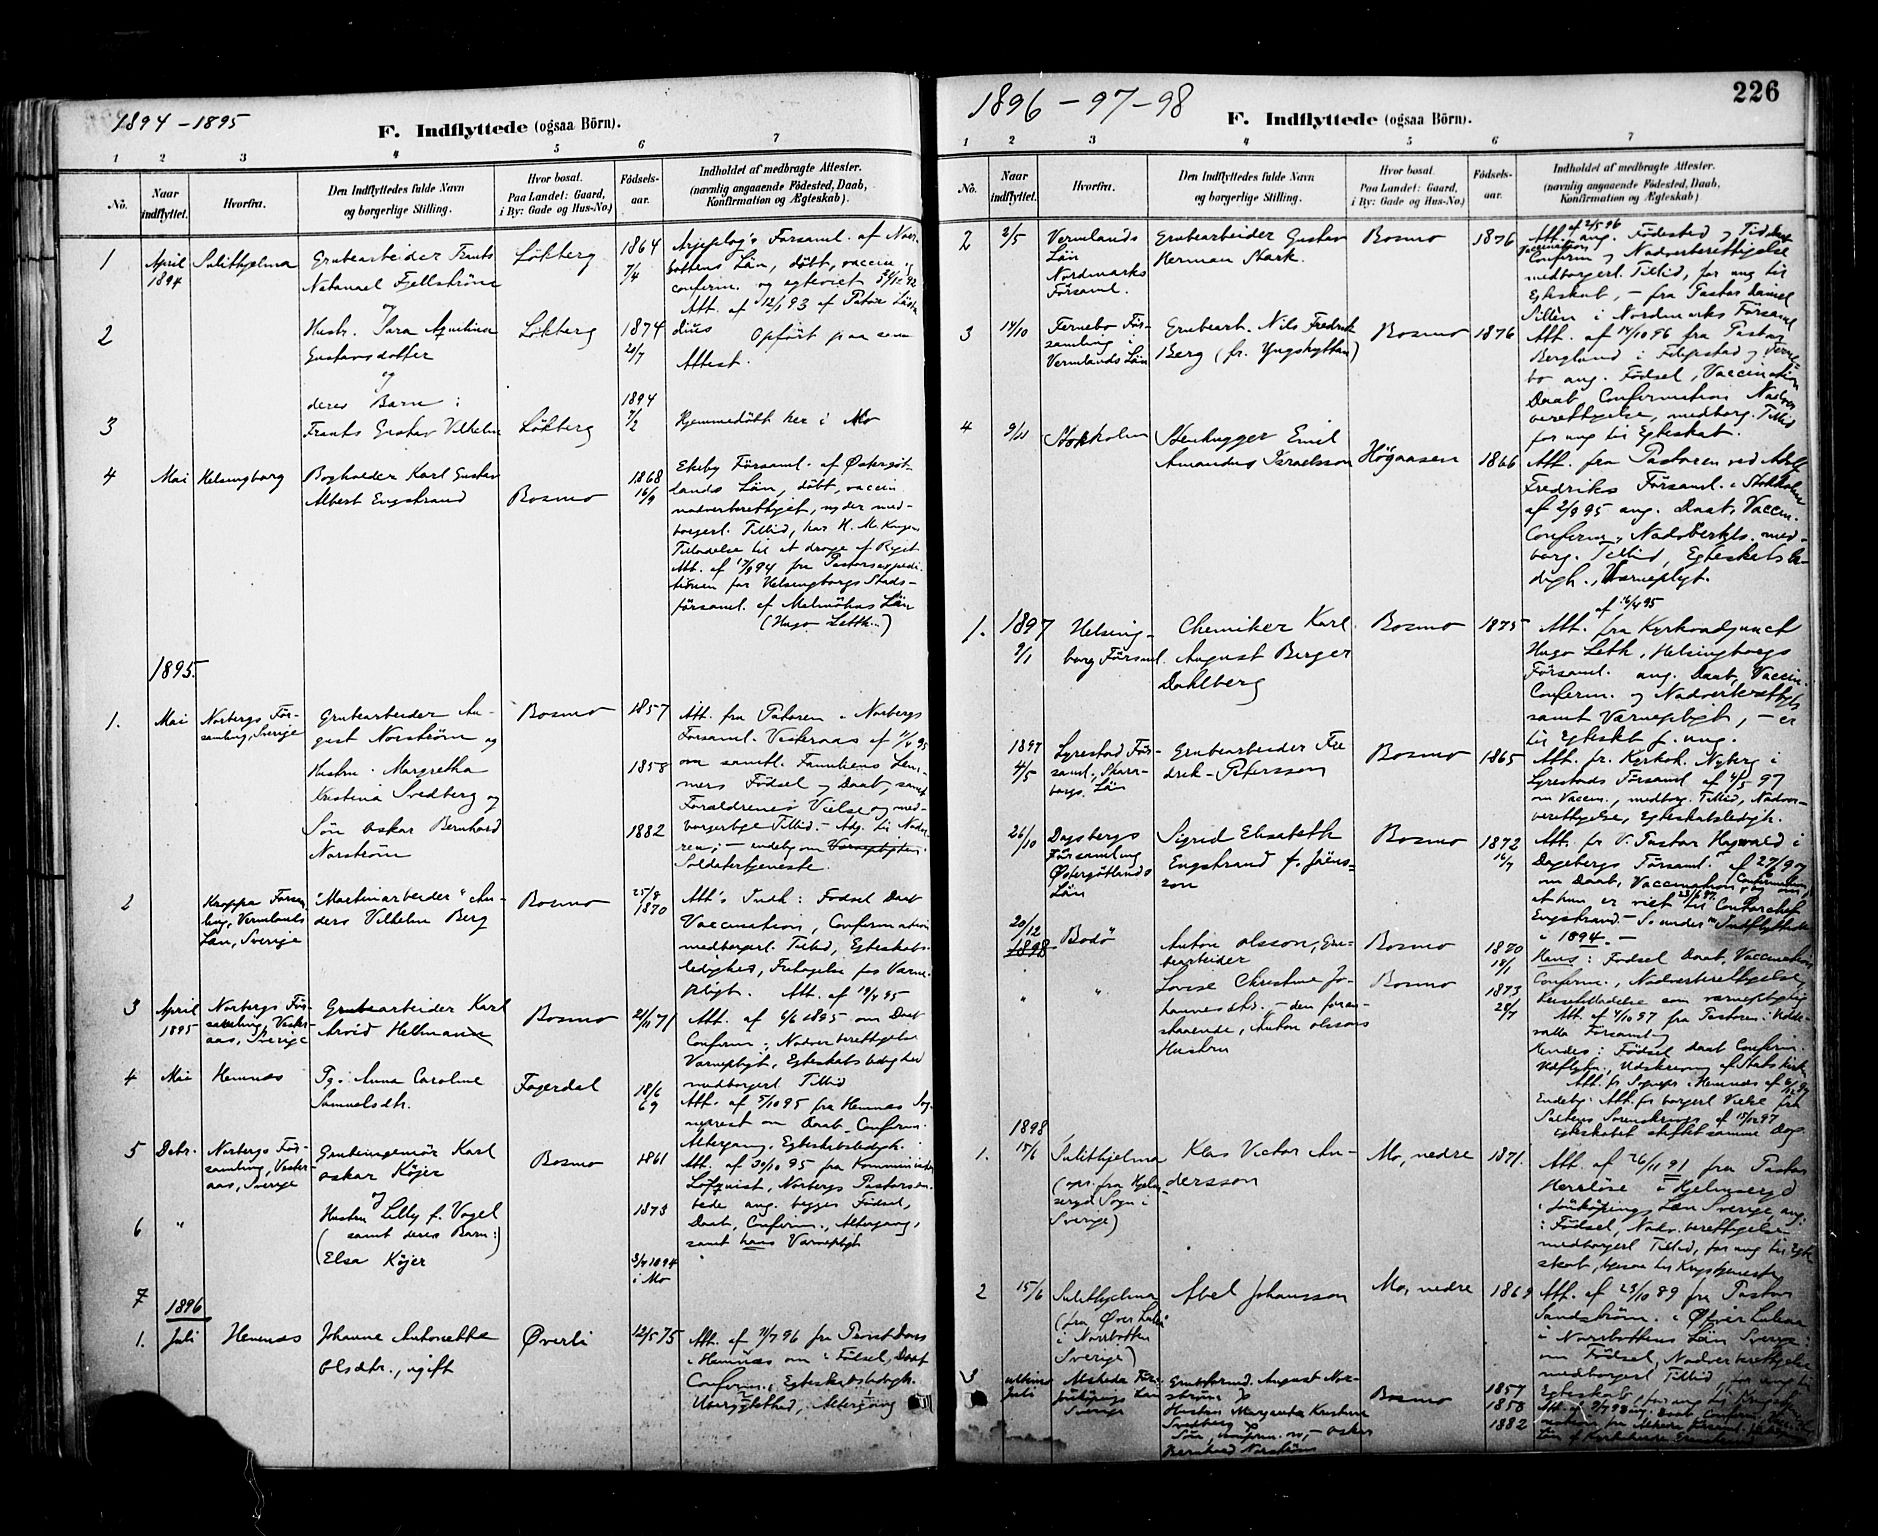 1894 - 1895
F. Indflyttede (ogsaa Börn).
1 2 3 4 5 6 7
No.
Naar indflyttet.
Hvorfra.
Den Indflyttedes fulde Navn og borgerlige Stilling.
Hvor bosat. Paa Landet: Gaard, i By: Gade og Hus-No.)
Fødsels-aar.
Indholdet af medbragte Attester. (navnlig angaaende Fødested, Daab, Konfirmation og Ægteskab).
1 April 1894 Sulithjelma
Grubearbeider Frants
Natanael Fjellström
og
Løkberg
1864
7/4
Arjeplog's Forsaml. af Norr-
bottens Län, döbt, vaccin. og
confirm. og egteviet
Att. af 12/1 93 af Pastor
2
Hustr. Sara Agatina
Gustavsdotter
og
Løkberg
1874
20/7
Opfört paa samme
Attest.
3
deres Barn:
Frants Gustav Vilhelm
Løkberg
1894
7/2
Hjemmedöbt her i Mo
4 Mai Helsingborg
Bogholder Karl Gustav
Albert Engstrand
Bosmo
1868
16/9
Ekeby Församl. af Östergöt-
lands Län, döbt, vaccin
nadverberettiget, nyder med-
borgerl. Tillid, har H. M. Kongens
Tilladelse til at drage af Riget
Att. af 17/4 94 fra Pastorsexpedi-
tionen for Helsingborgs Stads-
församl. af Malmöhus Län
(Hugo Leth...)
1895.
1. Mai Norbergs För-
samling, Sverige
Grubearbeider Au-
gust Norström og
Hustru. Margretha
Kristina Svedberg og
Sön Oskar Bernhard
Norström
Bosmo
1857
1858
1882
Att. fra Pastoren i Norbergs
Forsaml. Vesteraas af 11/4 95
om samtl. Familiens Lem-
mers Födsel og Daab, samt
Forældrenes Vielse og med-
borgerlige Tillid. - Adg. til Nadve-
ren; - endelig om Værnepligten
Soldatertjeneste.
2 Kroppa Forsam-
ling, Vermlands
Län, Sverige
"Martinarbeider" An-
ders Vilhelm Berg
Bosmo
25/8
1870
Att's Indh: Fodsel Daab
Vaccination, Confirmation
medborgerl. Tillid, Egteskabs-
ledighed, Fritagelse for Værne-
pligt. Att. af 19/4 95
3 April 1895
Norbergs För-
samling, Vester-
aas, Sverige
Grubearbeider Karl
Arvid Hellmann
Bosmo
21/11 71
Att. af 6/6 1895 om Daab
Conferm., Nadverberettigelse
Værnepligt, Egteskabsledighed
medborgerl Tillid
4 Mai Hemnæs
Pg. Anna Caroline
Samuelsdtr.
Fagerdal
18/6
69
Att. af 5/10 95 fra Hemnes Sog-
neprest om Daab, Conferm.
Altergang, Egteskabsledigh.
5 Decbr. Norbergs För-
samling, Vester-
aas, Sverige
Grubeingeniör Karl
Oskar Köjer
og
Bosmo
1861
Att. af 30/10 95 fra Komminister
Löfquist, Norbergs Pastorsem-
bede ang. begges Födsel,
Daab, Conferm., Altergang,
samt hans Værnepligt
6 "
Hustru Lilly f. Vogel
(samt deres Barn:)
1873
7
(Elsa Köjer
3/4 1894
i Mo
1896
1. Juli Hemnæs
Johanne Antonette
Olsdtr., ugift
Øverli
12/5 75
Att. af 4/7 96 fra Provst Dons
i Hemnæs om Födsel, Daab
Conferm., Egteskabsledigh.
Uberygtethed, Altergang
1896 - 97 - 98
226
F. Indflyttede (ogsaa Börn).
1 2 3 4 5 6 7
No.
Naar indflyttet.
Hvorfra.
Den Indflyttedes fulde Navn og borgerlige Stilling.
Hvor bosat. Paa Landet: Gaard, i By: Gade og Hus-No.)
Fødsels-aar.
Indholdet af medbragte Attester. (navnlig angaaende Fødested, Daab, Konfirmation og Ægteskab)
2 2/5 Vermlands
Län
Nordmarks
Församl.
Grubearbeider Gustav
Herman Stark.
Bosmo
1876
Att. af 2/5 96 ang. Födested og Tid, Daab
Vaccination,
Conferm og Nadverberettigelse
medborgerl. Tillid, for ung til
Egteskab, - fra Pastor Daniel
Sillén i Nordmarks Församl
3 14/10 Fernebo För-
samling i
Vermlands Län
Grubearb. Nils Fredrik
Berg (fr. Yngshyttan)
Bosmo
1876
Att. af 14/10 96 fra Pastor
Berglund i Filipstad og Ferne-
bo ang. Födsel, Vaccination
Daab, Confirmation Nadver-
berettigelse, medborg. Tillid
for ung til Egteskab.
4 9/11 Stokholm
Stenhugger Emil
Amandus Israelsson
Högaasen
1866
Att. fra Pastoren ved Adolf
Fredriks Församl. i Stokholm
af 2/9 95 ang. Daab, Vaccin.
Conferm., Nadvberets. med-
borg. Tillid, Egteskabsle-
digh., Værnepligt.
1. 1897
9/1
Helsing-
borg Församl.
Chemiker Karl
August Berger
Dahlberg
Bosmo
1875
af 16/4 95
Att. fra Kyrkoadjunct
Hugo Leth, Helsingborgs
Församl. ang. Daab, Vaccin.
Conferm. og Nadverberettigls
samt Værnepligt, - er
til Egteskb f. ung.
1897
4/5
Lyrestad För-
saml., Skara-
borgs Län
Grubearbeider Fre
drik Petersson
Bosmo
1865
Att. fr. Kyrkoh. Nyberg i
Lyrestads Församl af 4/5 97
om Vaccin., medborg. Tillid, Nadver-
berettigelse, Egteskabsledigh.
26/10
Dagsbergs
Församling
Östergötlands
Län
Sigrid Elisabeth
Engstrand f. Jöns-
son
Bosmo
1872
16/7
Att. fr V. Pastor Hagwald i
Dagsbergs Församl. af 27/9 97
om Daab, Vaccination, Confirmation,
at hun er viet til Contorchef
Engstrand. - Se under "Indflyttede
i 1894. -
20/12
1898
Bodö
Anton Olsson, Gru-
bearbeider
Bosmo
1870
18/1
Hans: Födsel Daab, Vaccination
Conferm., Nadverberettigelse,
Reisetilladelse som værnepligtig
Att. af 4/10 97 fra Pastoren i Udde-
valla Församl og
" "
Lovise Christine Jo-
hannesdtr. - den foran-
staaende, Anton Olssons
Hustru
Bosmo
1873
28/7
Hendes: Födsel Daab Conferm.
Udflytn., Udskrivning af Statskirken
Att. fr Sognepr. i Hemnæs af
Endelig: Att. for borgerl Vielse fra
Saltens Sorenskriver af 15/12 97
Egteskabet stiftet samme Dag.
1898
1. 15/6 Sulithjelma
(opr. fra Hjelm-
seryd Sogn i
Sverige)
Klas Victor An-
dersson
Mo, nedre
1871.
Att. af 26/11 91 fra Pastor
Herrlöse i Hjelmseryd
i Jönköpings Län Sverige ang:
: Födsel, Nadv. berettigelse
medborgerl Tillid, for ung til Egte-
skab,
2 15/6 Sulithjelma
(fra Över Luleå
i Norrbotten
Sverige)
Abel Johansson
Mo, nedre
1869
Att. af 23/10 89 fra Pastor
Sandström i Öfver Luleaa
i Norrbottens Län Sverige:
om Födsel, Nadverberettigelse
medborgerl Tillid, for ung til
Egteskab
3 ultimo
Juli
Alsheda För.
Jönköpings Län
Sverige
Grubeformd. August Nor-
ström og
Hustru Margareta Kristina
Svedberg og
Sön, - Oskar
Bernhard Norström
Bosmo
1857
1858
1882